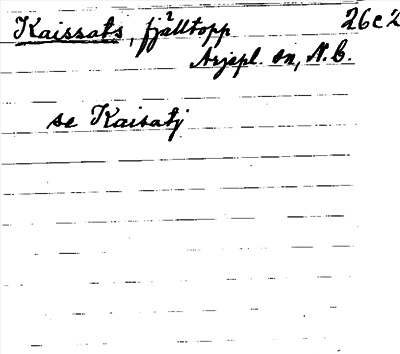 Kaissats, fjälltopp 26c2
Arjepl. sn, N.B.
se Kaisatj